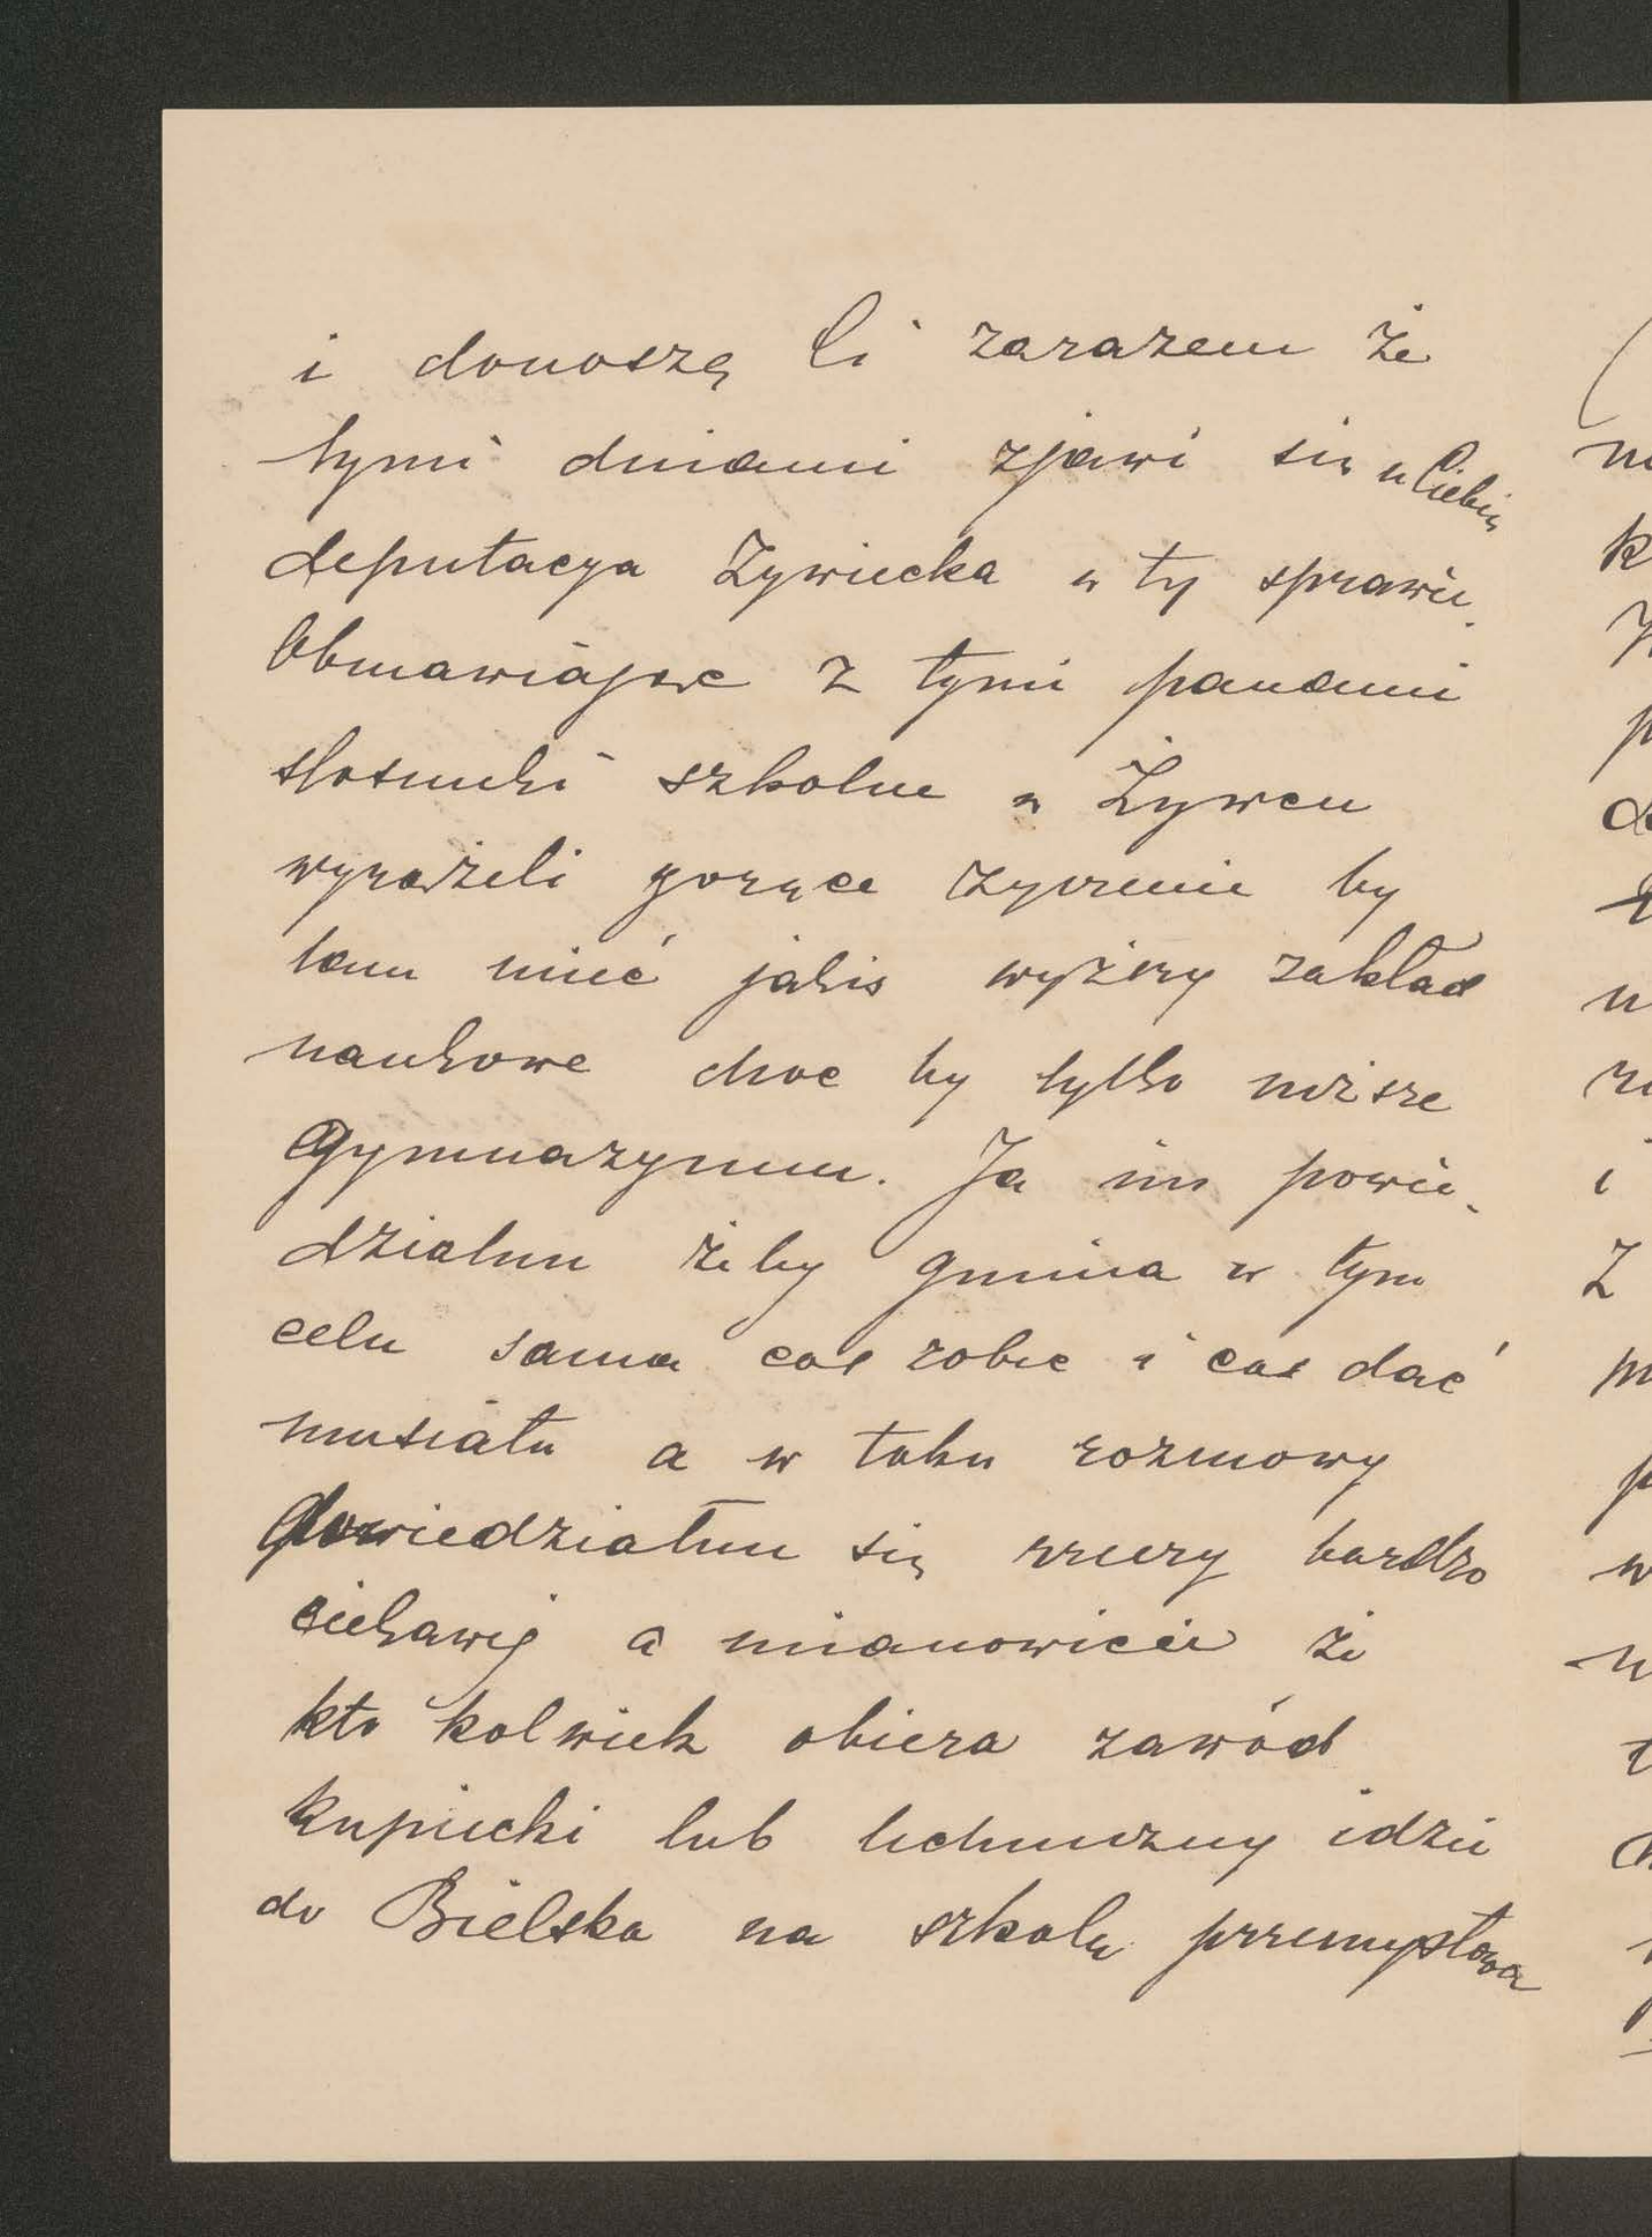 i donoszę Ci zarazem że
tymi dniami zjawi się u Ciebie
deputacya Żywiecka w tej sprawie.
Obmawiając z tymi panami
stosunki szkolne w Żywcu
wyrazżeli gorące życzenie by
tam mieć jakis wyższy zakład
naukowe choc by tylko niższe
Gymnazyum. Ja im powie-
działem żeby gmina w tym
celu sama cos robic i cos dać
musiała a w toku rozmowy
dowiedziałem się rzeczy bardzo
ciekawej a mianowicie że
kto kolwiek obiera zawód
kupiecki lub techniczny idzie
do Bielska na szkołę przemysłową